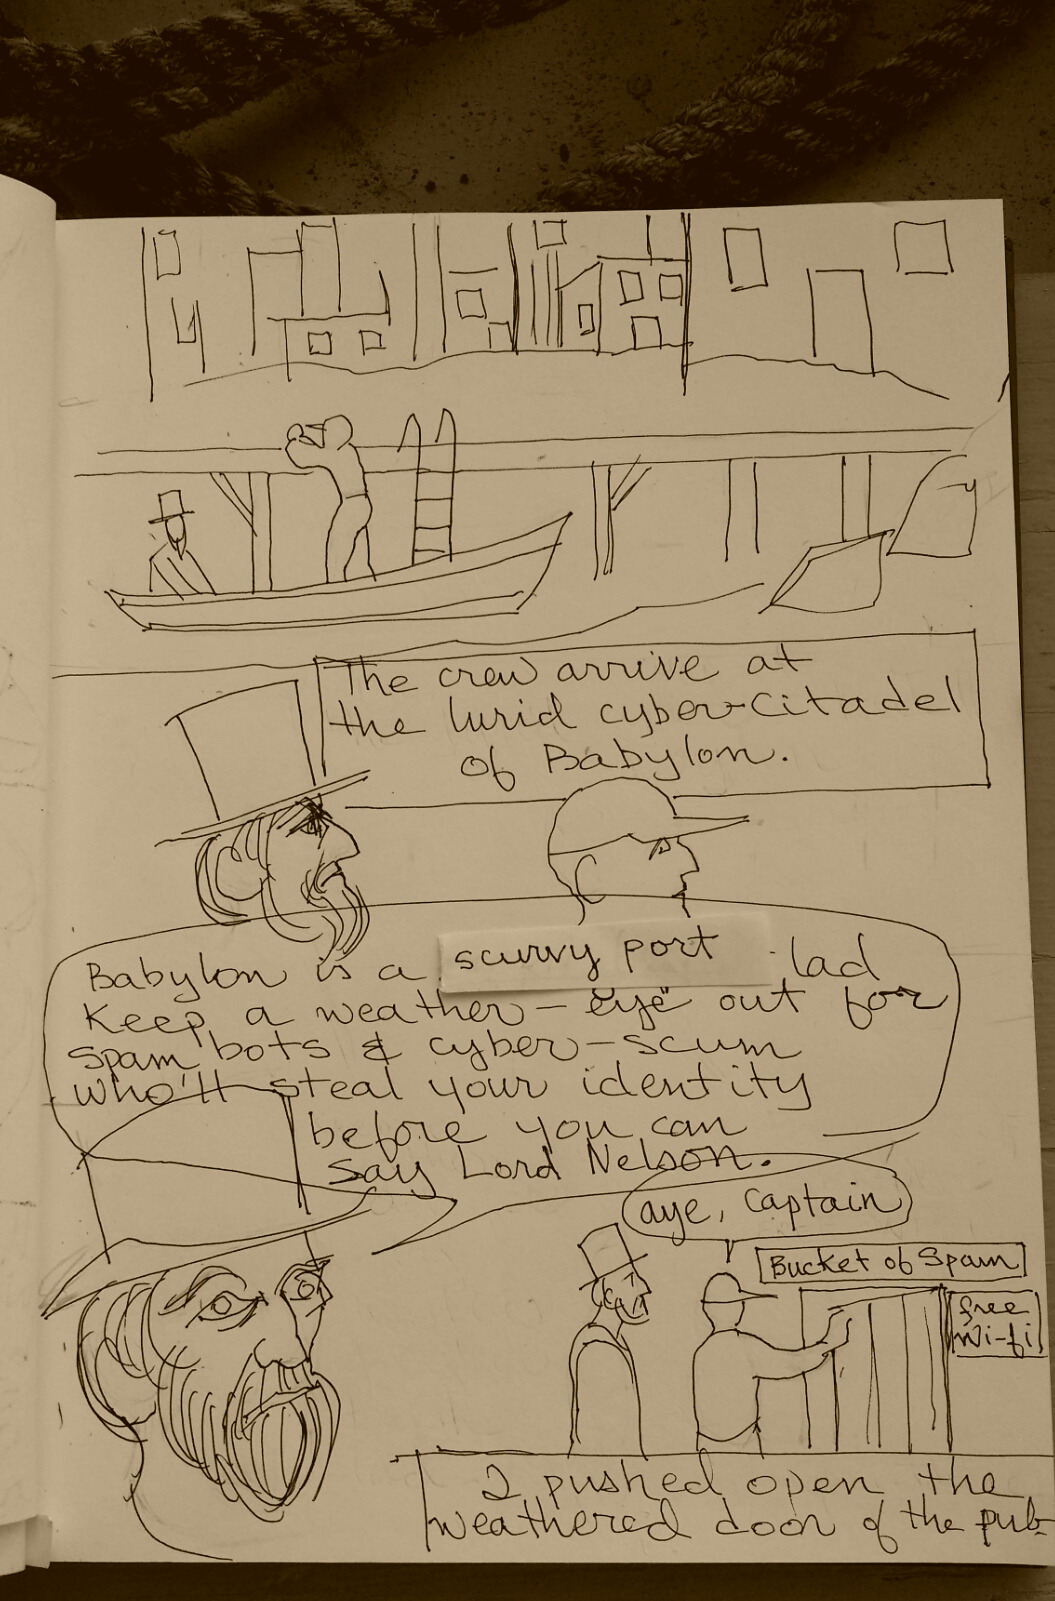 The crew arrive at
the lurid cyber-citadel
of Babylon.
Babylon is a scurvy port lad
Keep a weather-eye out for
spam bots & cyber-scum
who'll steal your identity
before you can
say Lord Nelson.
aye, captain
Bucket of Spam
free
wi-fi
I pushed open the
weathered door of the pub-